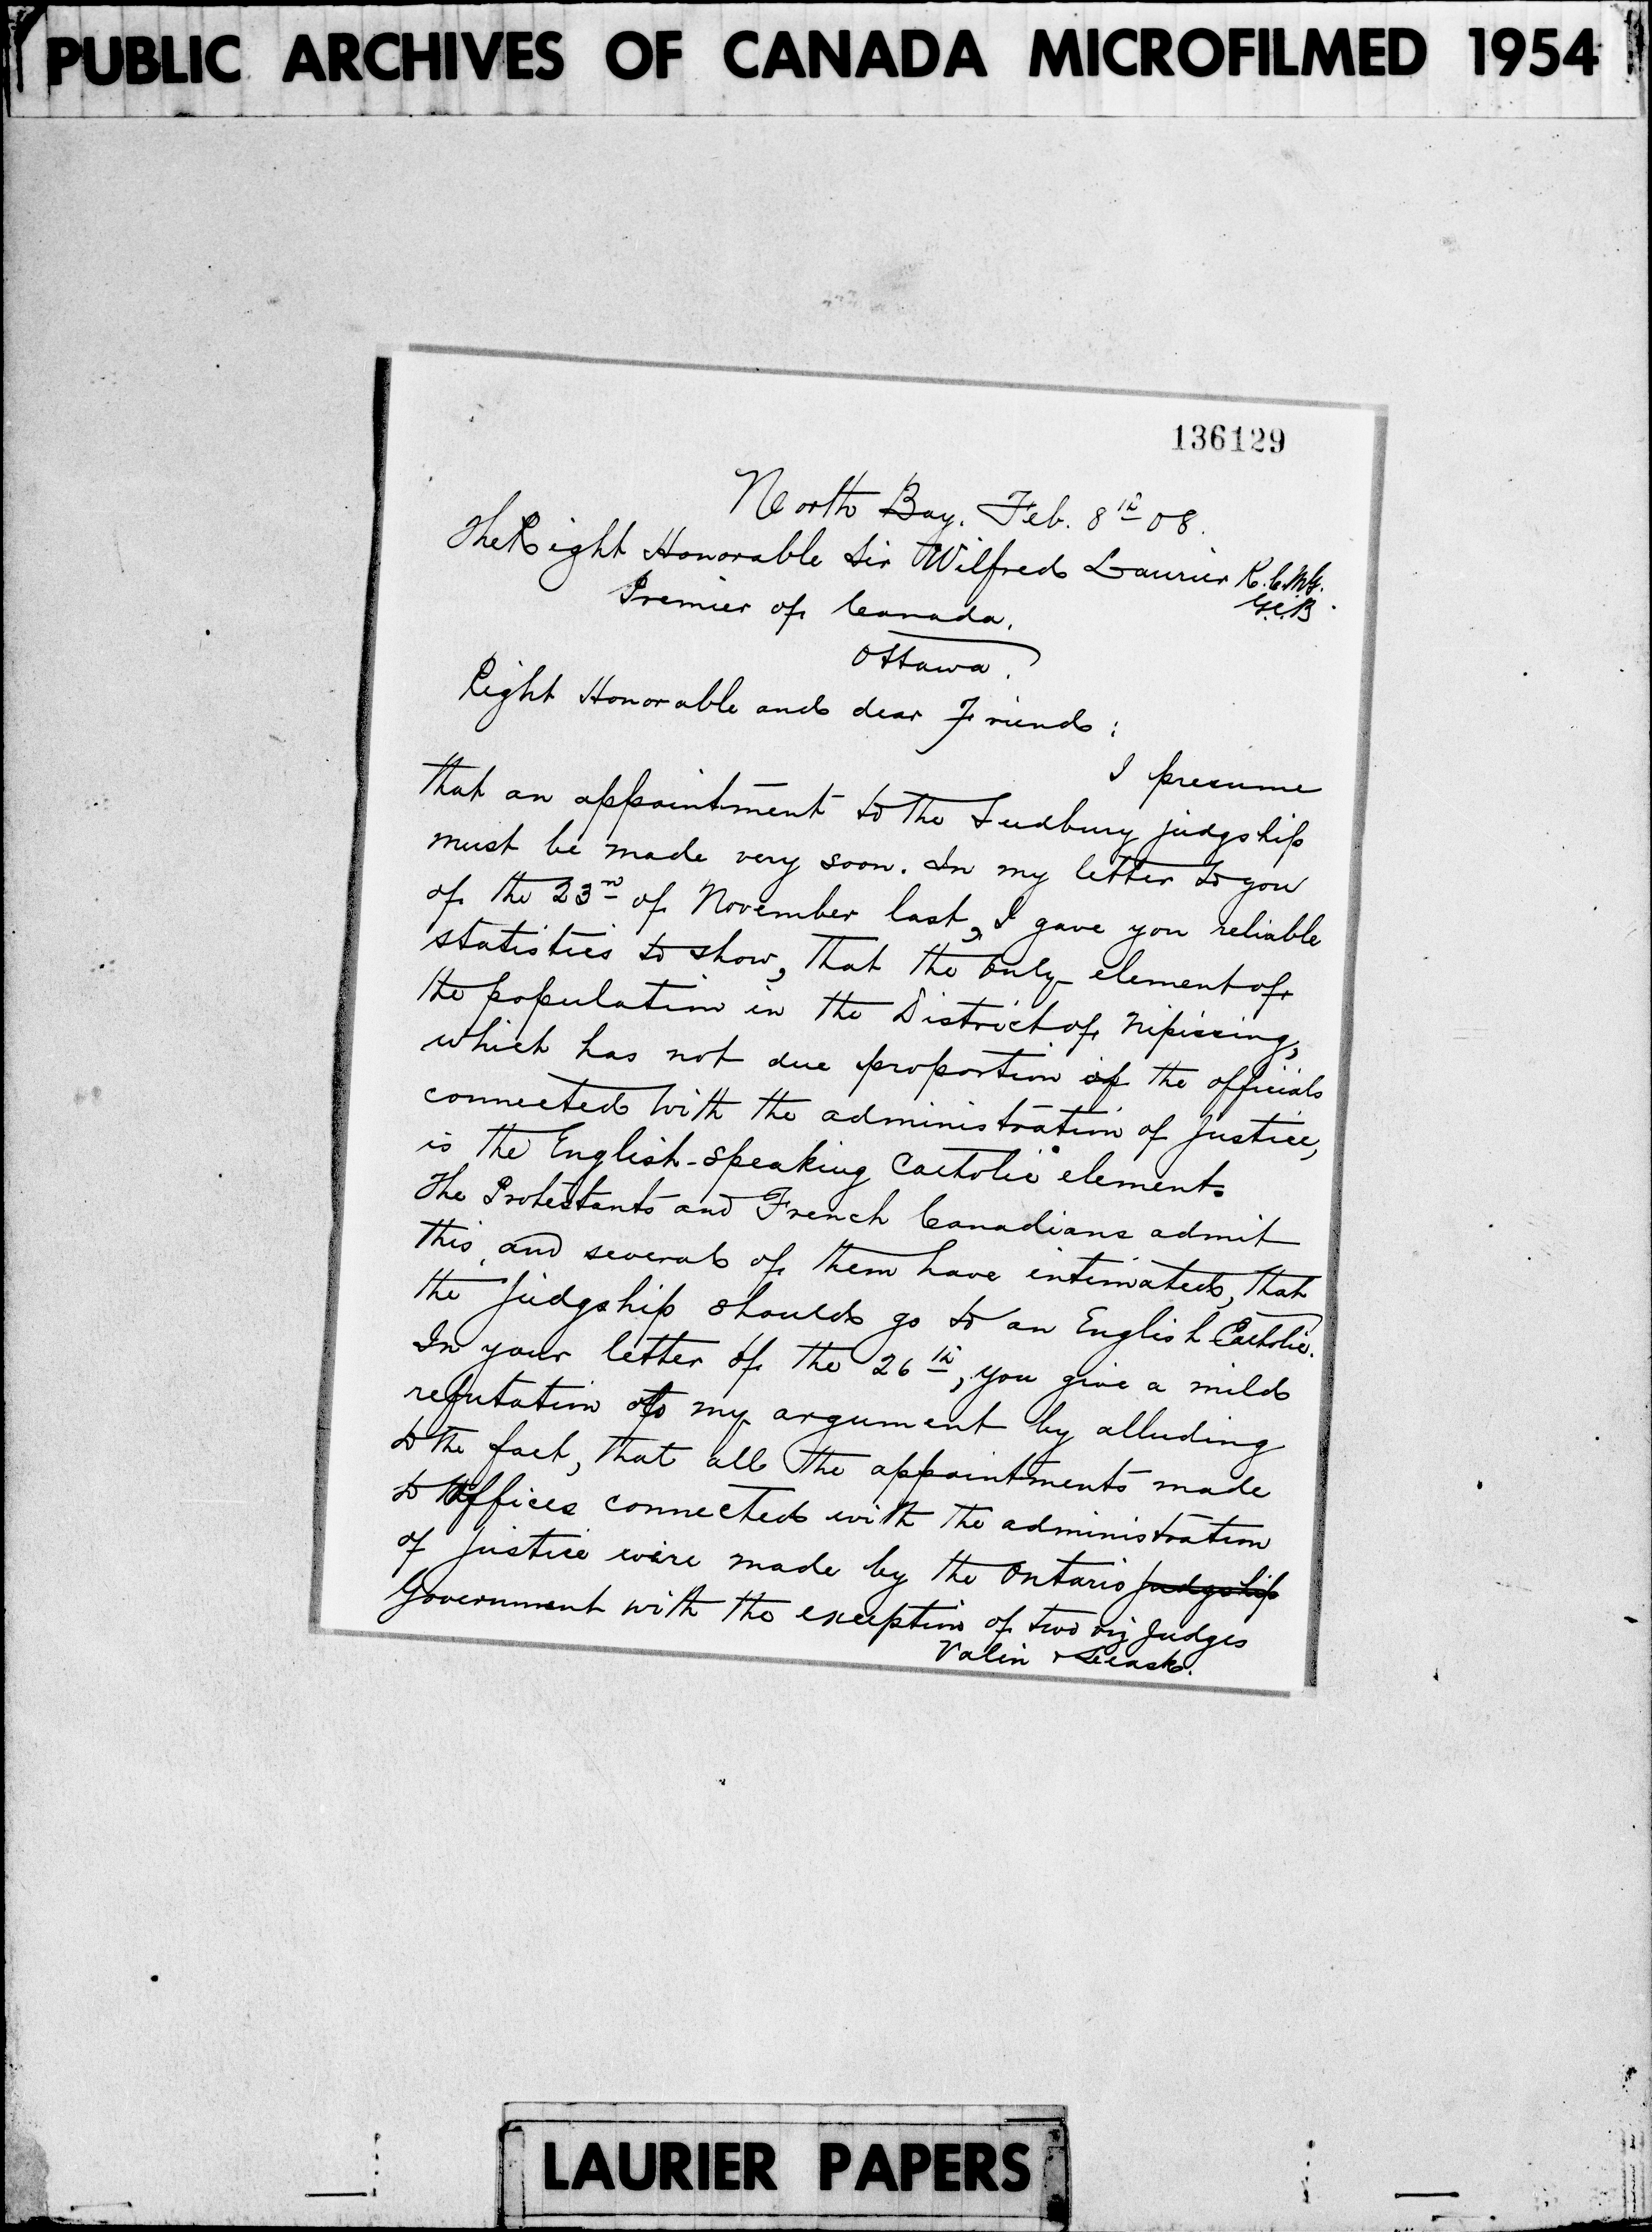 PUBLIC ARCHIVES OF CANADA MICROFILMED 1954
136129
North Bay. Feb. 8th 08.
The Right Honorable Sir Wilfred Laurier K.C.M.G.
G.C.B.
Premier of Canada.
Ottawa.
Right Honorable and dear Friend:
I presume
that an appointment to the Sudbury judgship
must be made very soon. In my letter to you
of the 23rd of November last, I gave you reliable
statistics to show, that the only element of
the population in the District of Nipissing,
which has not due proportion of the officials
connected with the administration of justice,
is the English-speaking Catholic element.
The Protestants and French Canadians admit
this, and several of them have intimated, that
the judgship should go to an English Catholic.
In your letter of the 26th, you give a mild
refutation to my argument by alluding
to the fact, that all the appointments made
to offices connected with the administration
of justice were made by the Ontario judgship
Government with the exception of two viz Judges
Valin & Leask.
LAURIER PAPERS